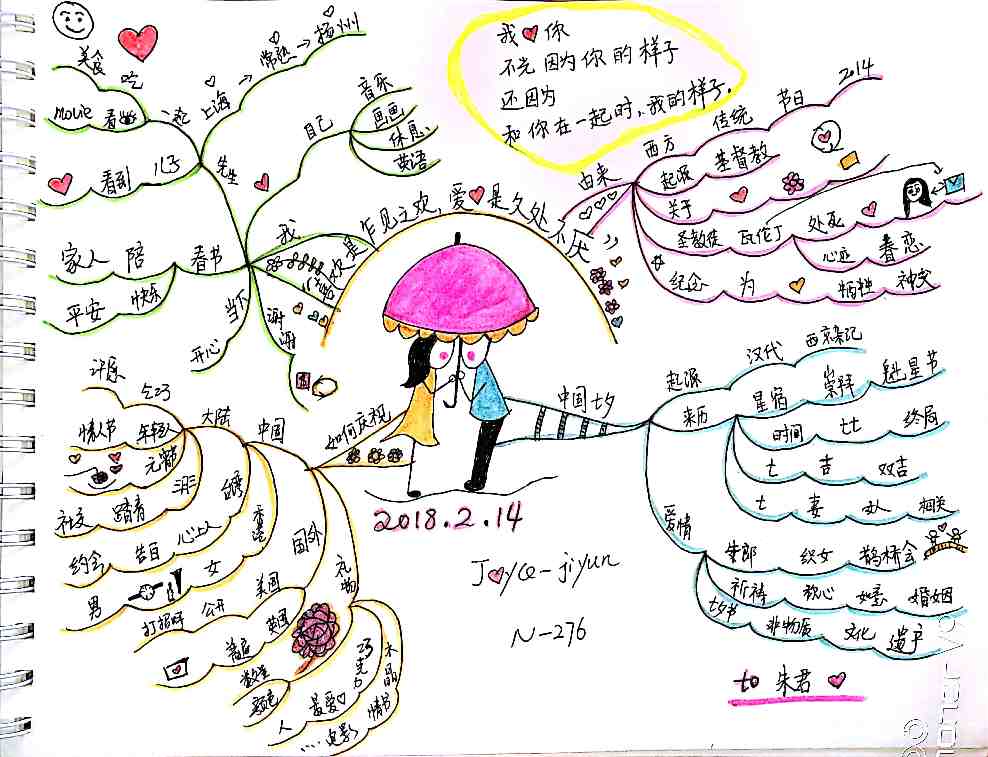 我 你
不光因为你的样子
还因为
和你在一起时,我的样子.
喜欢是乍见之欢,爱是久处不厌
美食 吃
movie 看
一起 上海 → 常熟 → 扬州
先生
看到 儿子
自己
音乐
画画
休息
英语
我
家人 陪 看书
平安 快乐
当下
开心
谢谢
由来
起源 西方 传统 节日 2014
基督教
关于
圣教徒 瓦伦丁 处死
心画 眷恋
纪念 为 牺牲 神父
中国七夕
起源
来历 汉代 西京杂记
星宿 崇拜 魁星节
时间 七七 终局
七 吉 双吉
七 妻 女人 相关
爱情
牛郎 织女 鹊桥会
七夕节 祈祷 称心 如意 婚姻
非物质 文化 遗产
如何庆祝
中国
大陆
情人节 年轻人
元宵节
社交 踏青
台湾
约会 告白 心上人
男 女
国外
打招呼 公开 美国
英国
礼物
数量
颜色
人 最爱
巧克力
水晶
情书
……电影
2018.2.14
Joyce-jiyun
N-276
to 朱君